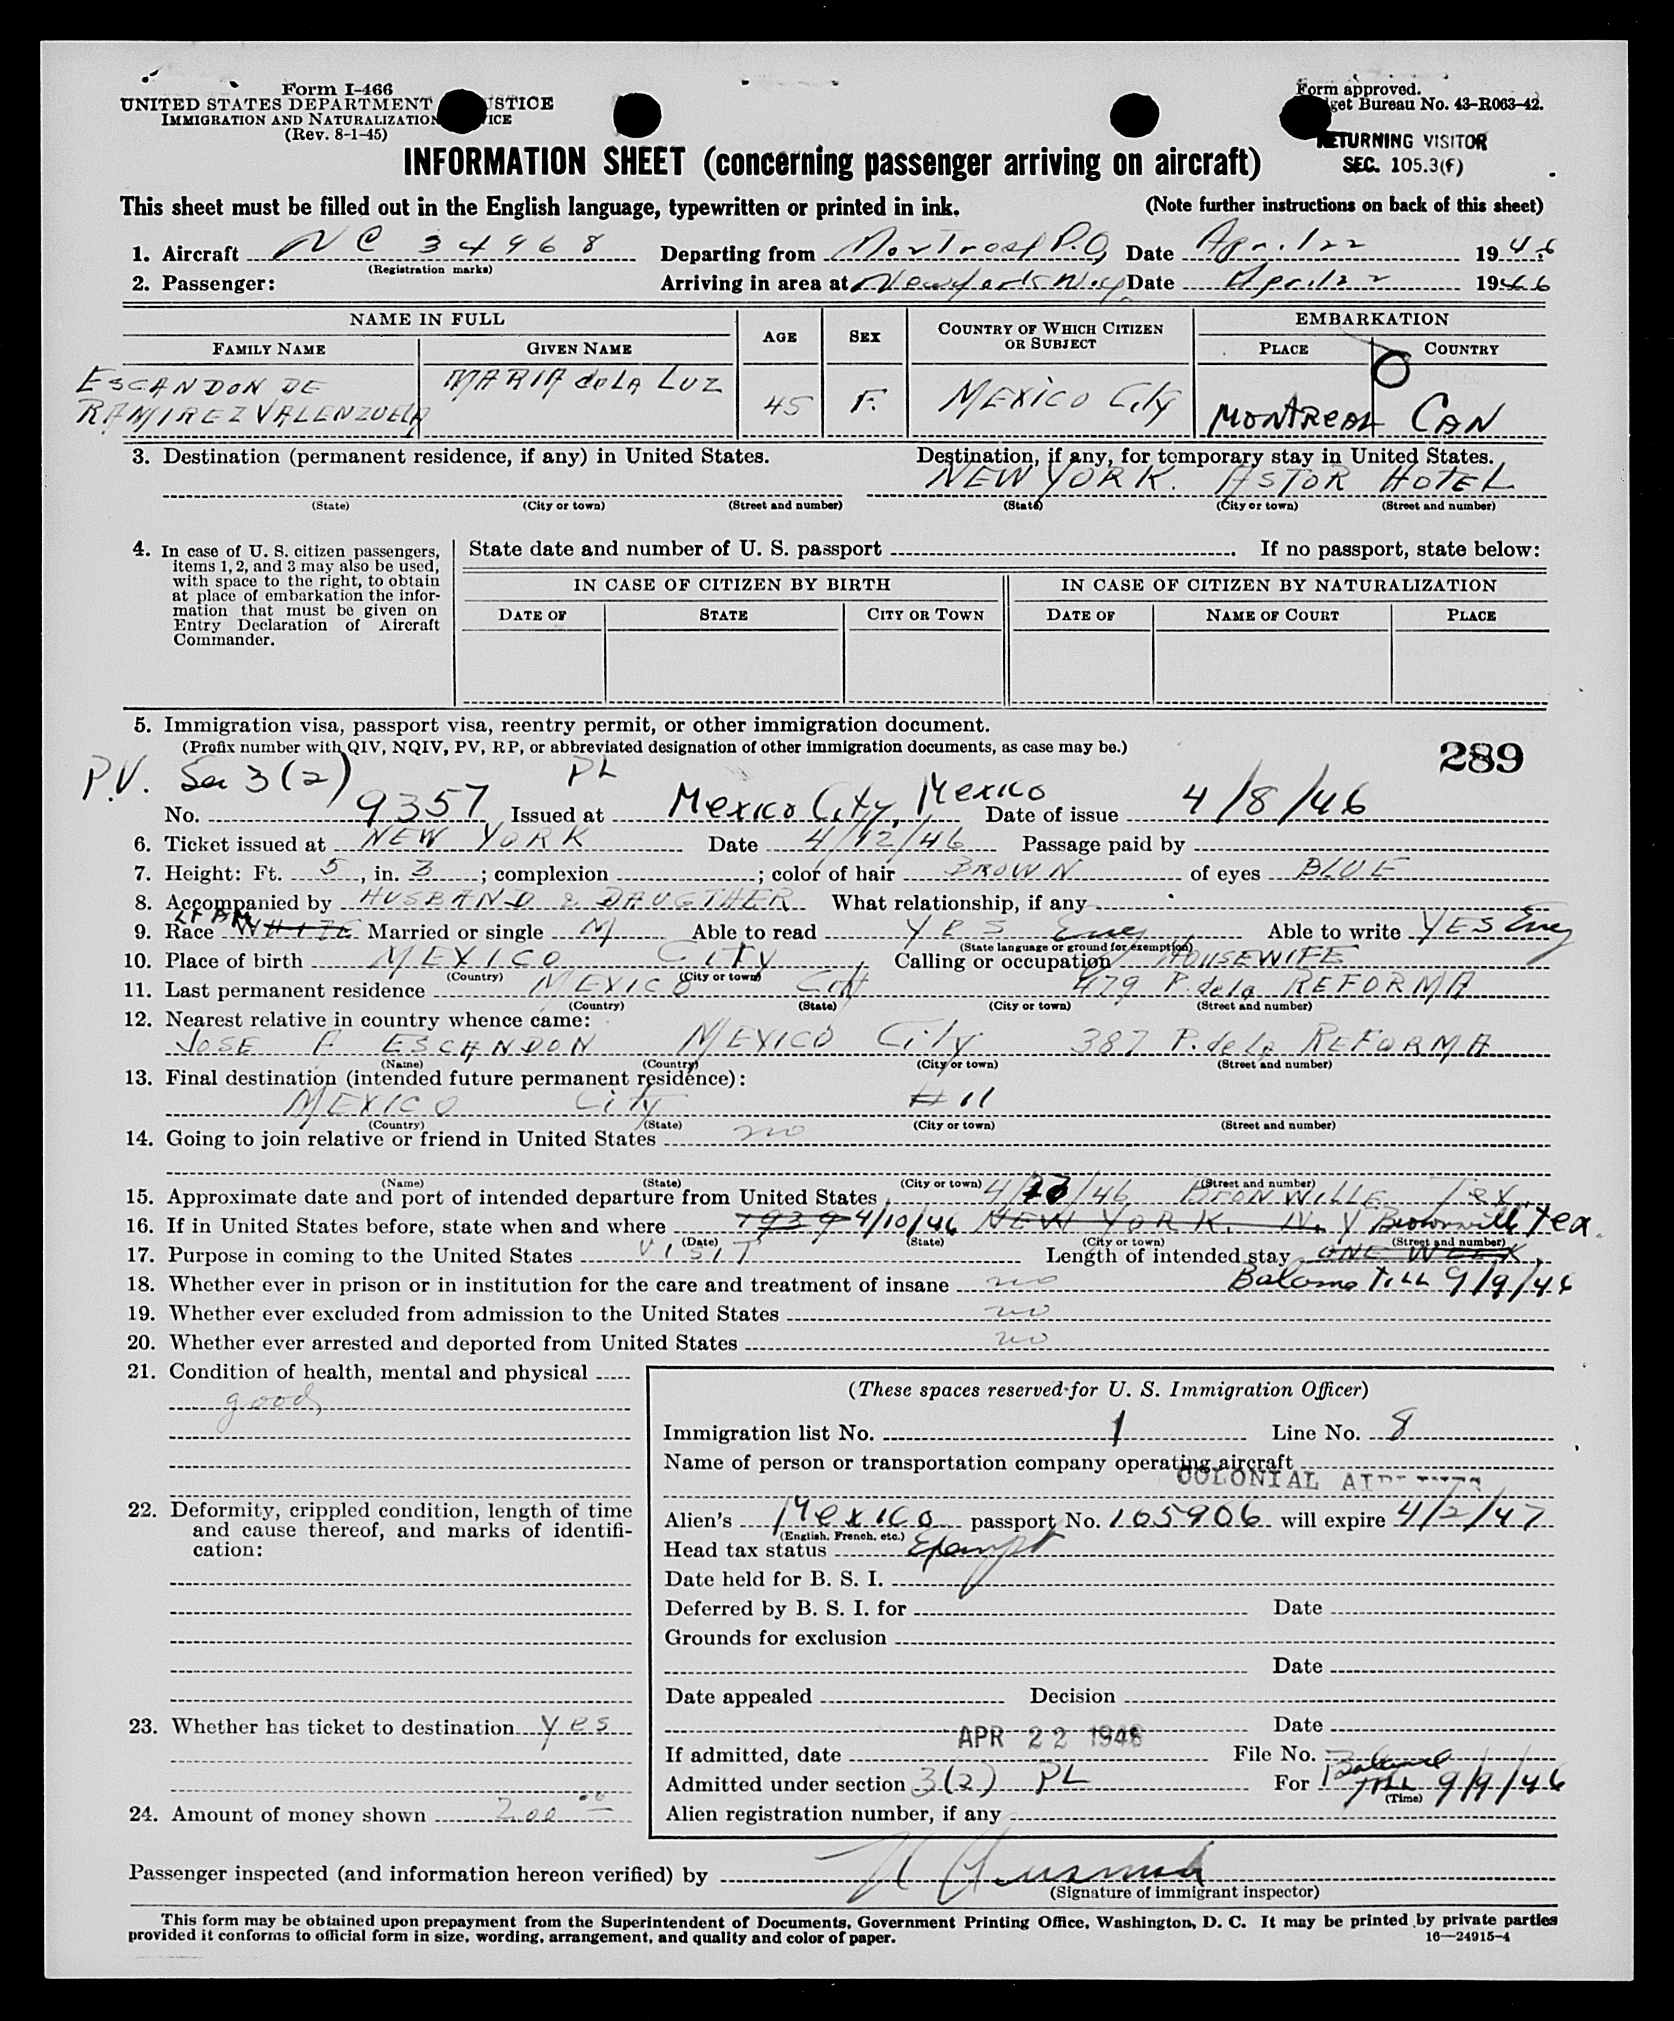 Form I-466
UNITED STATES DEPARTMENT STICE
IMMIGRATION AND NATURALIZATION ICE
(Rev. 8-1-45)
Form approved.
get Bureau No. 43-R063-42.
RETURNING VISITOR
SEC. 105.3(f)
INFORMATION SHEET (concerning passenger arriving on aircraft)
This sheet must be filled out in the English language, typewritten or printed in ink. (Note further instructions on back of this sheet)
1. Aircraft NC 34968 Departing from Montreal P.Q, Date April 22 1946
(Registration marks)
2. Passenger: Arriving in area at New York N.Y. Date April 22 1946
NAME IN FULL AGE SEX COUNTRY OF WHICH CITIZEN OR SUBJECT EMBARKATION
FAMILY NAME GIVEN NAME PLACE COUNTRY
ESCANDON DE MARIA de LA LUZ
RAMIREZ VALENZUELA 45 F. MEXICO City MONTREAL CAN
3. Destination (permanent residence, if any) in United States. Destination, if any, for temporary stay in United States.
NEW YORK. ASTOR HOTEL
(State) (City or town) (Street and number) (State) (City or town) (Street and number)
4. In case of U. S. citizen passengers, items 1, 2, and 3 may also be used, with space to the right, to obtain at place of embarkation the information that must be given on Entry Declaration of Aircraft Commander.
State date and number of U. S. passport . If no passport, state below:
IN CASE OF CITIZEN BY BIRTH IN CASE OF CITIZEN BY NATURALIZATION
DATE OF STATE CITY OR TOWN DATE OF NAME OF COURT PLACE
5. Immigration visa, passport visa, reentry permit, or other immigration document.
(Prefix number with QIV, NQIV, PV, RP, or abbreviated designation of other immigration documents, as case may be.)
289
P.V. Sec 3(2) PL
No. 9357 Issued at Mexico City, Mexico Date of issue 4/8/46
6. Ticket issued at NEW YORK Date 4/12/46 Passage paid by
7. Height: Ft. 5, in. 3; complexion ; color of hair BROWN of eyes BLUE
8. Accompanied by HUSBAND & DAUGTHER What relationship, if any
LT AM
9. Race WHITE Married or single M Able to read YES Eng Able to write YES Eng
(State language or ground for exemption)
10. Place of birth MEXICO City Calling or occupation HOUSEWIFE
(Country) (City or town)
11. Last permanent residence MEXICO City 479 P. de la REFORMA
(Country) (State) (City or town) (Street and number)
12. Nearest relative in country whence came:
JOSE A ESCANDON MEXICO City 387 P. de La REFORMA
(Name) (Country) (City or town) (Street and number)
13. Final destination (intended future permanent residence):
MEXICO City # 11
(Country) (State) (City or town) (Street and number)
14. Going to join relative or friend in United States no
(Name) (State) (City or town) (Street and number)
15. Approximate date and port of intended departure from United States 4/23/46 BRONWILLE Tex
16. If in United States before, state when and where 1939 4/10/46 NEW YORK. N. Y Brownville Tex.
(Date) (State) (City or town) (Street and number)
17. Purpose in coming to the United States VISIT Length of intended stay ONE WEEK
18. Whether ever in prison or in institution for the care and treatment of insane no Balance Till 9/9/46
19. Whether ever excluded from admission to the United States no
20. Whether ever arrested and deported from United States no
21. Condition of health, mental and physical
good
(These spaces reserved for U. S. Immigration Officer)
Immigration list No. 1 Line No. 8
Name of person or transportation company operating aircraft
COLONIAL
22. Deformity, crippled condition, length of time and cause thereof, and marks of identification:
Alien's Mexico passport No. 105906 will expire 4/2/47
(English, French, etc.)
Head tax status Exempt
Date held for B. S. I.
Deferred by B. S. I. for Date
Grounds for exclusion
Date
Date appealed Decision
23. Whether has ticket to destination Yes
Date
APR 22 1946
If admitted, date File No.
Balance
Admitted under section 3(2) PL For Till 9/9/46
(Time)
24. Amount of money shown 200 00
Alien registration number, if any
Passenger inspected (and information hereon verified) by
(Signature of immigrant inspector)
This form may be obtained upon prepayment from the Superintendent of Documents, Government Printing Office, Washington, D. C. It may be printed by private parties
provided it conforms to official form in size, wording, arrangement, and quality and color of paper. 16—24915-4